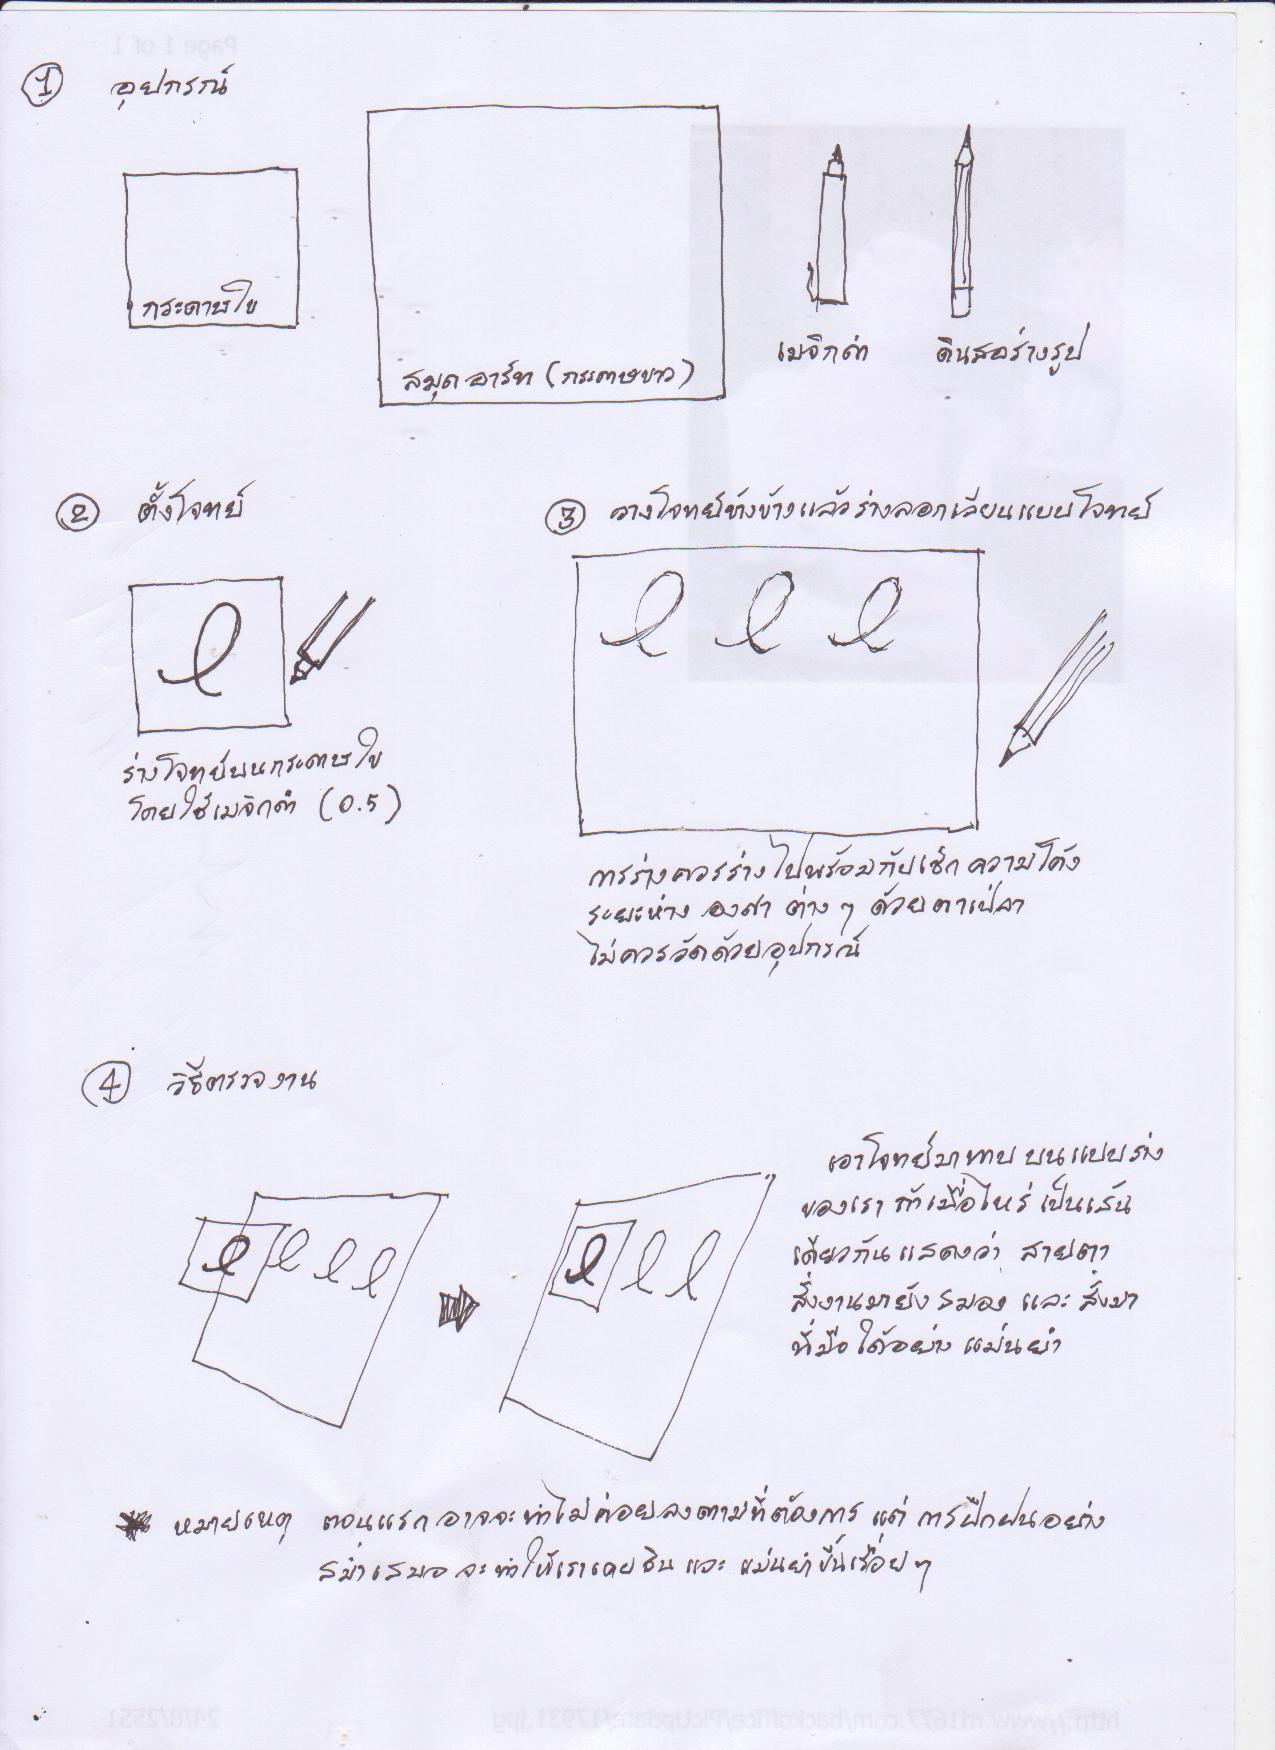 Page 1 of 1
1 อุปกรณ์
กระดาษไข
สมุดอาร์ท (กระดาษขาว)
เมจิกดำ
ดินสอร่างรูป
2 ตั้งโจทย์
ร่างโจทย์บนกระดาษไข
โดยใช้เมจิกดำ (0.5)
3 วางโจทย์ข้างข้างแล้วร่างลอกเลียนแบบโจทย์
การร่างควรร่างไปพร้อมกับเช็กความโค้ง
ระยะห่าง องศา ต่าง ๆ ด้วยตาเปล่า
ไม่ควรวัดด้วยอุปกรณ์
4 วิธีตรวจงาน
เอาโจทย์มาทาบ บนแบบร่าง
ของเรา ถ้าเมื่อไหร่ เป็นเส้น
เดียวกัน แสดงว่า สายตา
สั่งงานมายัง สมอง และ สั่งมา
ที่มือ ได้อย่าง แม่นยำ
หมายเหตุ ตอนแรก อาจจะ ทำไม่ค่อยลงตามที่ต้องการ แต่ การฝึกฝนอย่าง
สม่ำเสมอ จะ ทำให้เราเคยชิน และ แม่นยำขึ้นเรื่อย ๆ
http://www.rd1677.com/backoffice/PicUpdate/17931.jpg
24/8/2551